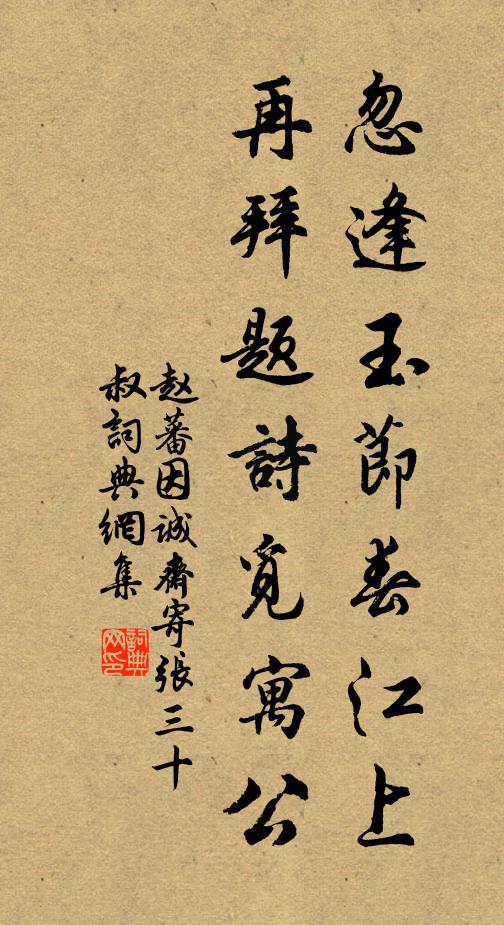 忽逢玉節春江上
再拜題詩覓寓公
赵蕃因誠齋寄張三十
叔詞典網集
詞典网印